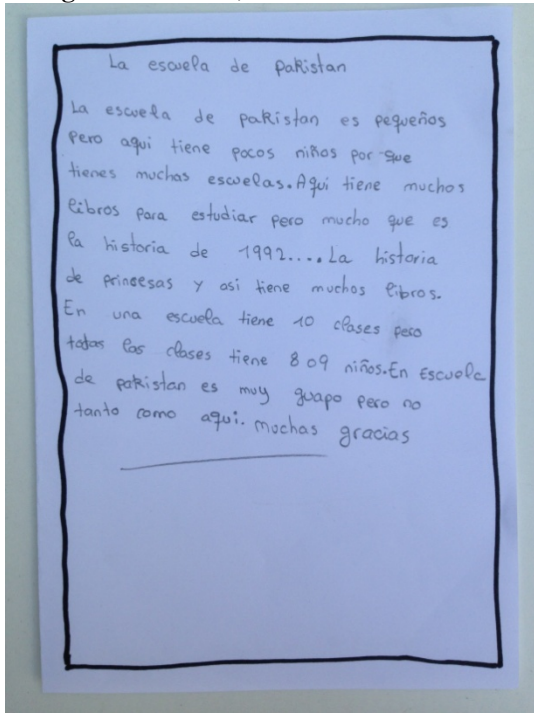 La escuela de pakistan
La escuela de pakistan es pequeños
pero aqui tiene pocos niños por que
tienes muchas escuelas. Aqui tiene muchos
libros para estudiar pero mucho que es
la historia de 1992.... La historia
de princesas y asi tiene muchos libros.
En una escuela tiene 10 clases pero
todas las clases tiene 8 o 9 niños. En Escuela
de pakistan es muy guapo pero no
tanto como aqui. muchas gracias